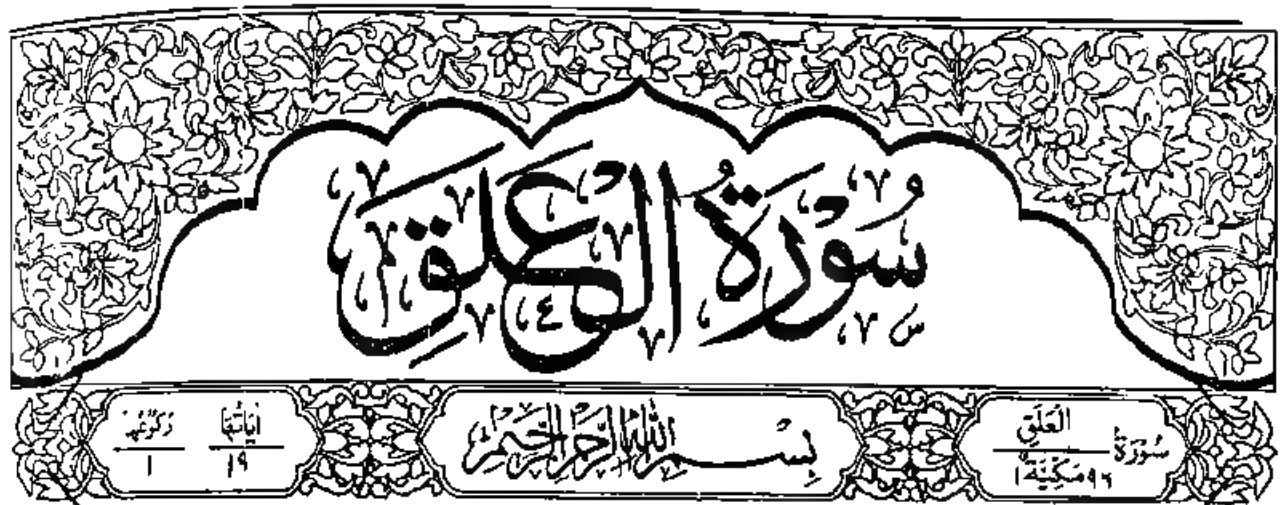 سُوْرَةُ الْعَلَقِ
سُوْرَةُ الْعَلَقِ ٩٦ مَكِّيَّةٌ ١
بِسْمِ اللّٰهِ الرَّحْمٰنِ الرَّحِيْمِ
اٰيَاتُهَا ١٩ رُكُوْعُهَا ١